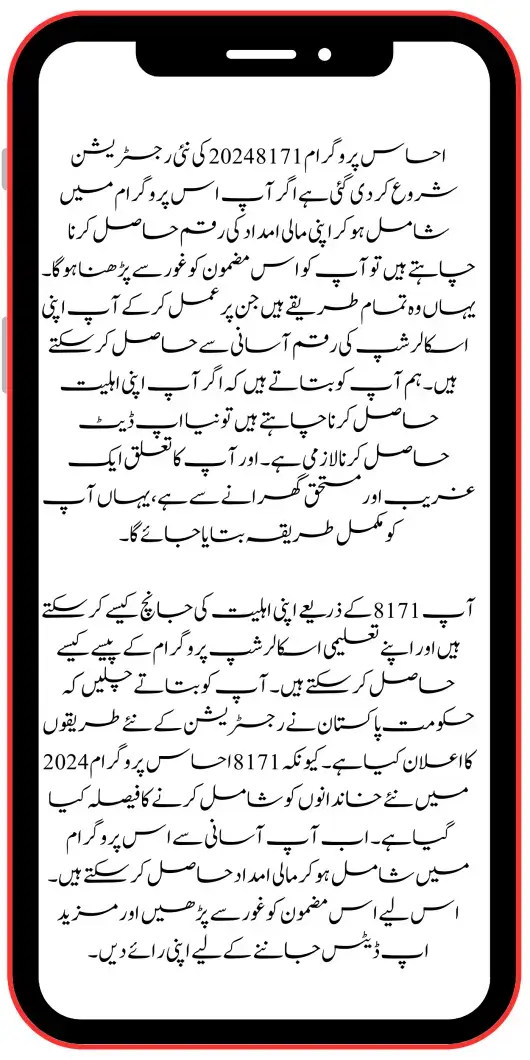 احساس پروگرام 20248171 کی نئی رجسٹریشن
شروع کر دی گئی ہے اگر آپ اس پروگرام میں
شامل ہو کر اپنی مالی امداد کی رقم حاصل کرنا
چاہتے ہیں تو آپ کو اس مضمون کو غور سے پڑھنا ہو گا۔
یہاں وہ تمام طریقے ہیں جن پر عمل کر کے آپ اپنی
اسکالرشپ کی رقم آسانی سے حاصل کر سکتے
ہیں۔ ہم آپ کو بتاتے ہیں کہ اگر آپ اپنی اہلیت
حاصل کرنا چاہتے ہیں تو نیا اپ ڈیٹ
حاصل کرنا لازمی ہے۔ اور آپ کا تعلق ایک
غریب اور مستحق گھرانے سے ہے، یہاں آپ
کو مکمل طریقہ بتایا جائے گا۔
آپ 8171 کے ذریعے اپنی اہلیت کی جانچ کیسے کر سکتے
ہیں اور اپنے تعلیمی اسکالرشپ پروگرام کے پیسے کیسے
حاصل کر سکتے ہیں۔ آپ کو بتاتے چلیں کہ
حکومت پاکستان نے رجسٹریشن کے نئے طریقوں
کا اعلان کیا ہے۔ کیونکہ 8171 احساس پروگرام 2024
میں نئے خاندانوں کو شامل کرنے کا فیصلہ کیا
گیا ہے۔ اب آپ آسانی سے اس پروگرام
میں شامل ہو کر مالی امداد حاصل کر سکتے ہیں۔
اس لیے اس مضمون کو غور سے پڑھیں اور مزید
اپ ڈیٹس جاننے کے لیے اپنی رائے دیں۔